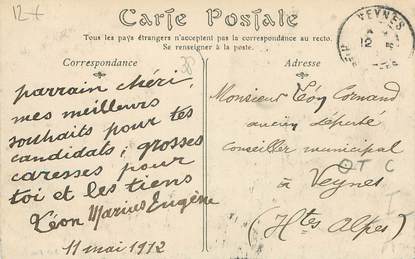 12 t
Carte Postale
Tous les pays étrangers n'acceptent pas la correspondance au recto.
Se renseigner à la poste.
VEYNES
12
Correspondance
parrain chéri,
mes meilleurs
souhaits pour tes
candidats, grosses
caresses pour
toi et les tiens
Léon Marius Eugène
11 mai 1912
Adresse
Monsieur Léon Cornand
ancien député
Conseiller municipal
à Veynes
(Htes Alpes)
OT C